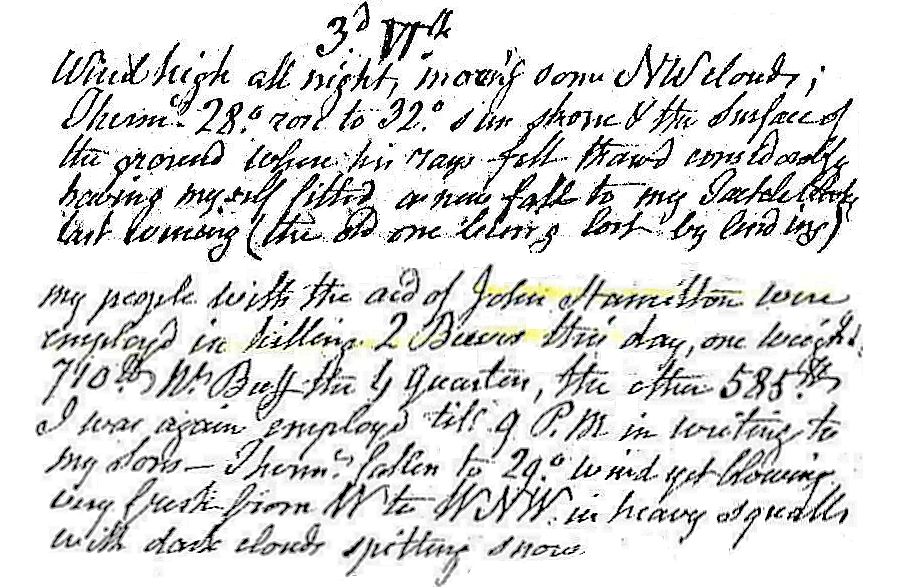 3.d VIth
Wind high all night, morng some NW clouds;
Thermr. 28.° rose to 32.° sun shone & the surface of
the ground where his rays fell thaw'd considerably
having myself fitted a new fall to my Tackle
last evening (the old one being lost by lending)
my people with the aid of John Hamilton were
employd in killing 2 Beeves this day, one weighd.
710 lbs Nt. Beef the 4 Quarters, the other 585 lbs
I was again employd till 9 P.M in writing to
my Sons — Thermr. fallen to 29.° wind yet blowing
very fresh from W to WNW. in heavy squalls
with dark clouds spitting snow